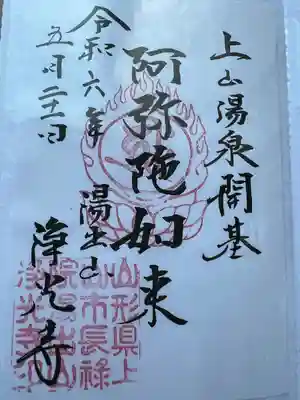 上山湯泉開基
阿弥陀如来
湯出山
浄光寺
令和六年
五月二十一日
山形県上
山市長禄
院湯出山
浄光寺